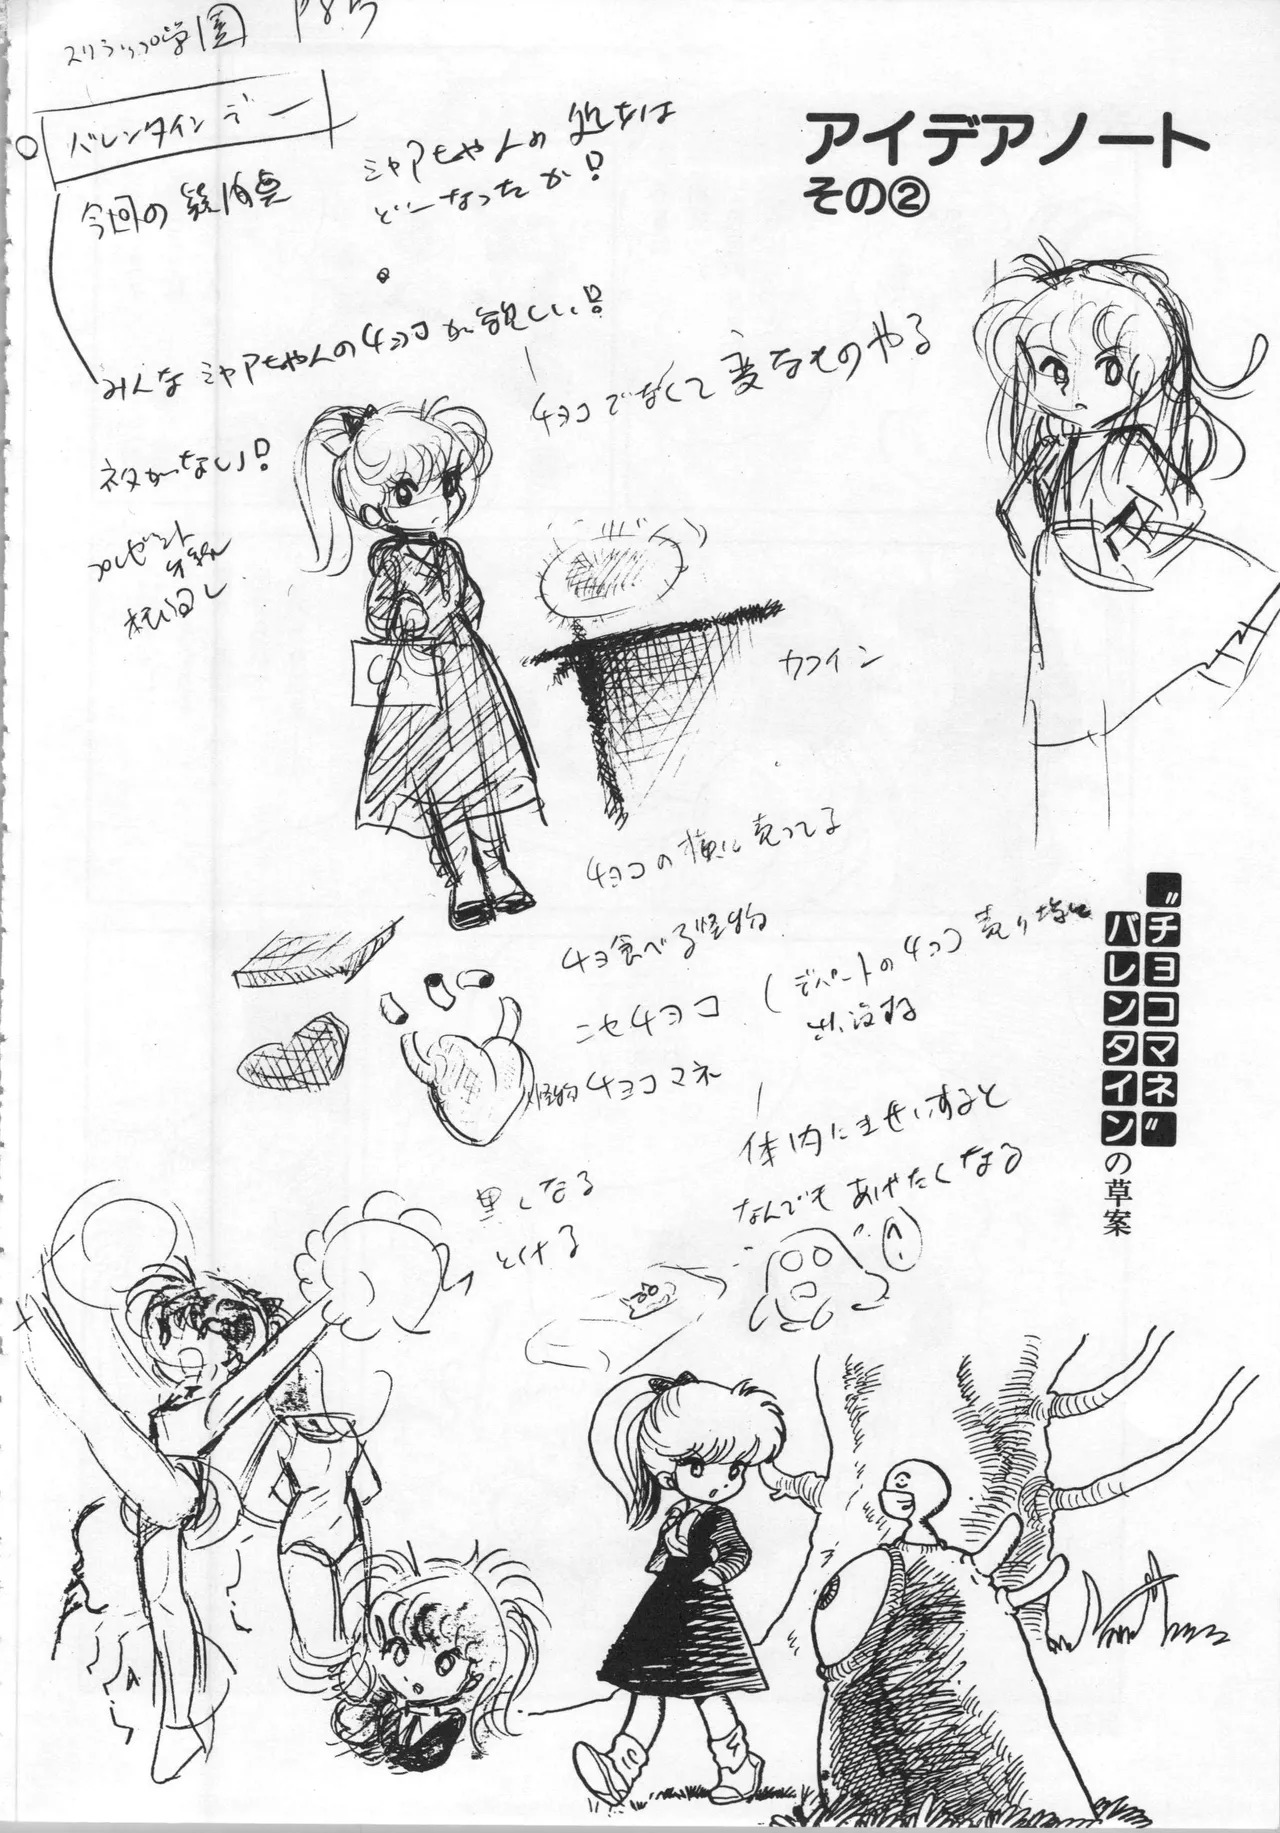 アイデアノート
その②
スクラップ学園 P85
バレンタインデー
今回の疑問点
ミャアちゃんの処女は
どーなったか!
みんなミャアちゃんのチョコが欲しい!
チョコでなくて変なものやる
ネタがない!
プレゼント
カフイン
チョコの横に売ってる
チョコ食べる怪物
ニセチョコ
(デパートのチョコ売り場に
出没する
怪物チョコマネ
体内にきせいすると
なんでもあげたくなる
黒くなる
とける
"チョコマネ"
バレンタインの草案